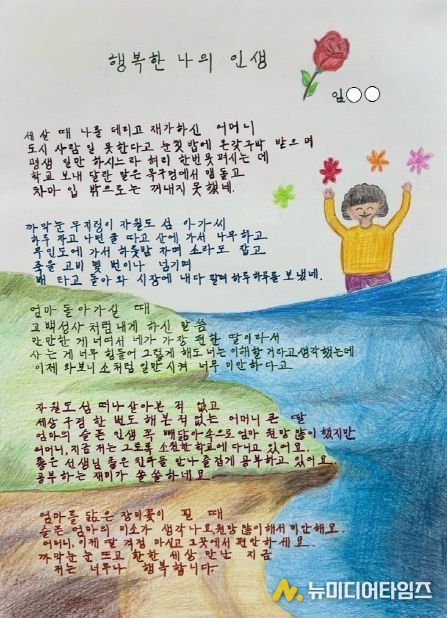 행복한 나의 인생
임○○
세 살 때 나를 데리고 재가하신 어머니
도시 사람 일 못한다고 눈칫밥에 온갖구박 받으며
평생 일만 하시느라 허리 한번 못펴시는 데
학교 보내 달란 말은 목구멍에서 맴돌고
차마 입 밖으로는 꺼내지 못했네.
까막눈 무지렁이 자월도 섬 아가씨
하루 자고 나면 굴 따고 산에 가서 나무하고
무인도에 가서 하룻밤 자며 소라도 잡고
죽을 고비 몇 번이나 넘기며
배 타고 돌아와 시장에 내다 팔며 하루하루를 보냈네.
엄마 돌아가실 때
고백성사처럼 내게 하신 말씀
만만한 게 너여서 네가 가장 편한 딸이라서
사는 게 너무 힘들어 그렇게 해도 너는 이해할거라고 생각했는데
이제 와보니 소처럼 일만 시켜 너무 미안하다고.
자월도 섬 떠나 살아본 적 없고
세상 구경 한 번도 해 본적 없는 어머니 큰 딸
엄마의 슬픈 인생 꼭 빼닮아 속으로 엄마 원망 많이 했지만
어머니, 지금 저는 그토록 소원한 학교에 다니고 있어요.
좋은 선생님 좋은 친구를 만나 즐겁게 공부하고 있어요.
공부하는 재미가 쏠쏠하네요.
엄마를 닮은 장미꽃이 필 때
슬픈 엄마의 미소가 생각나요 원망 많이해서 미안해요.
어머니, 이제 딸 걱정 마시고 그곳에서 편안하세요.
까막눈 뜨고 환한 세상 만난 지금
저는 너무나 행복합니다.
뉴미디어타임즈